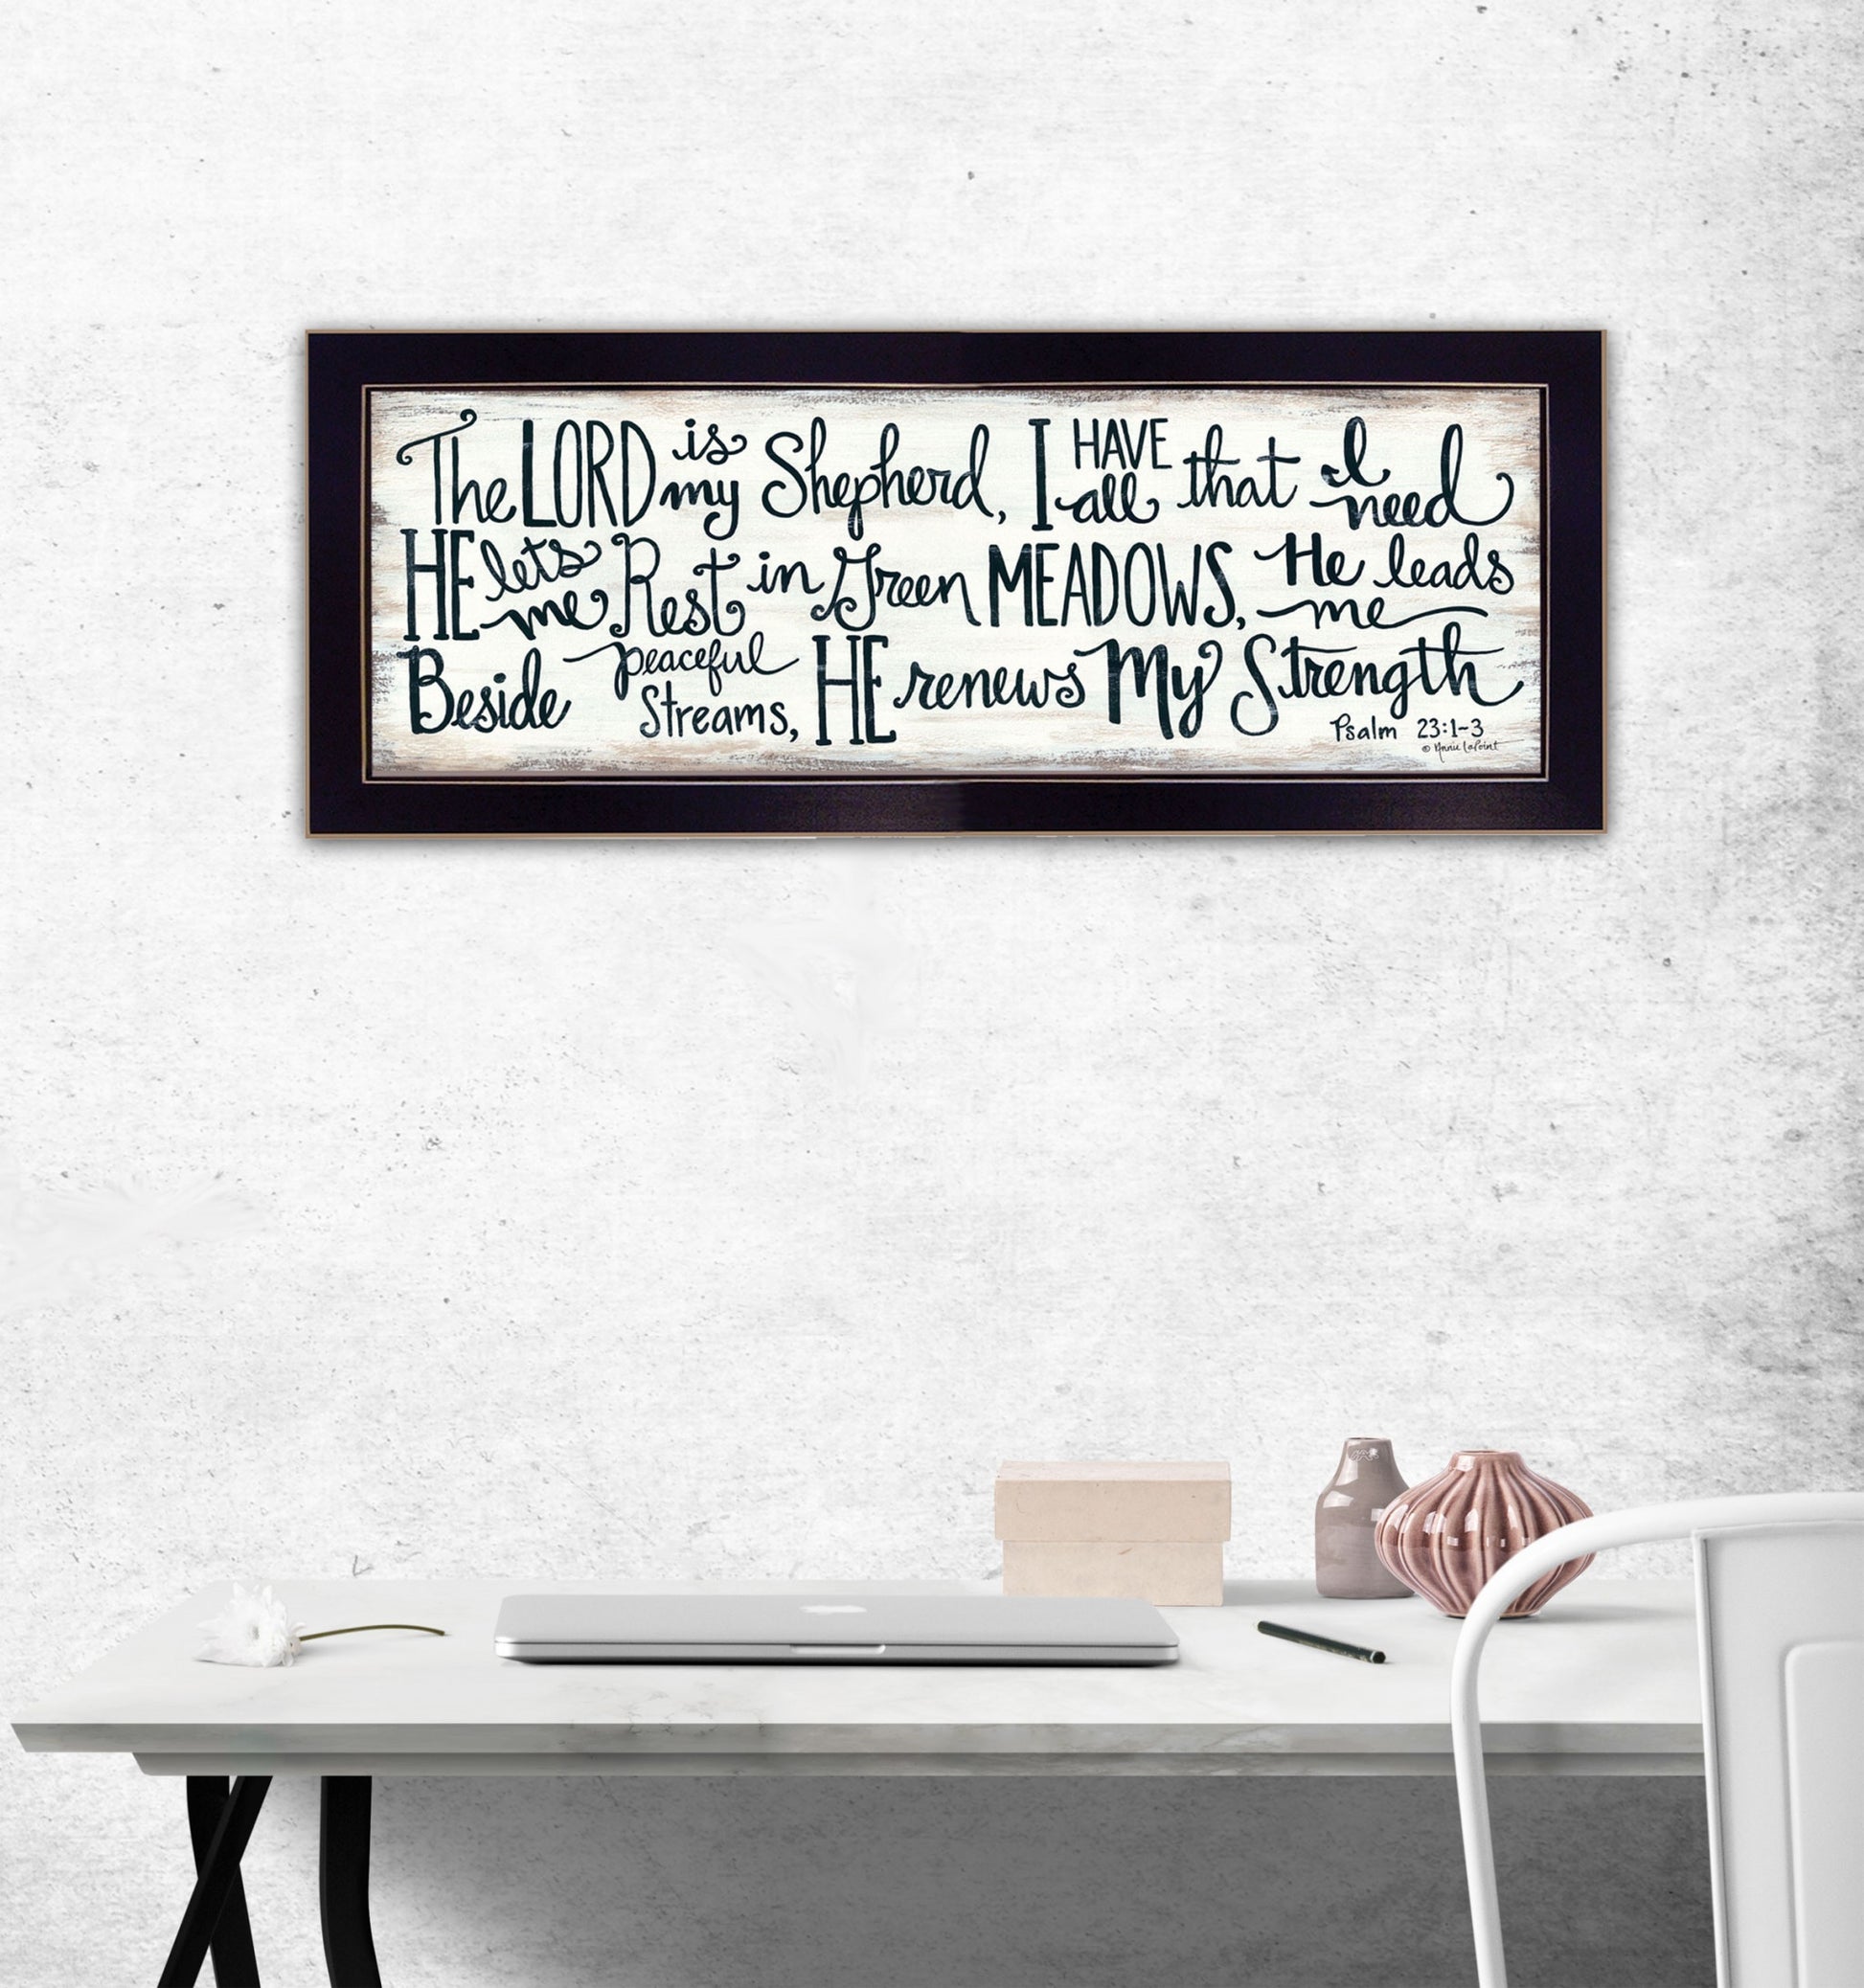 The LORD is my Shepherd, I HAVE all that I need
HE lets me Rest in Green MEADOWS, He leads me
Beside peaceful Streams, HE renews My Strength
Psalm 23:1-3
© Annie LaPoint